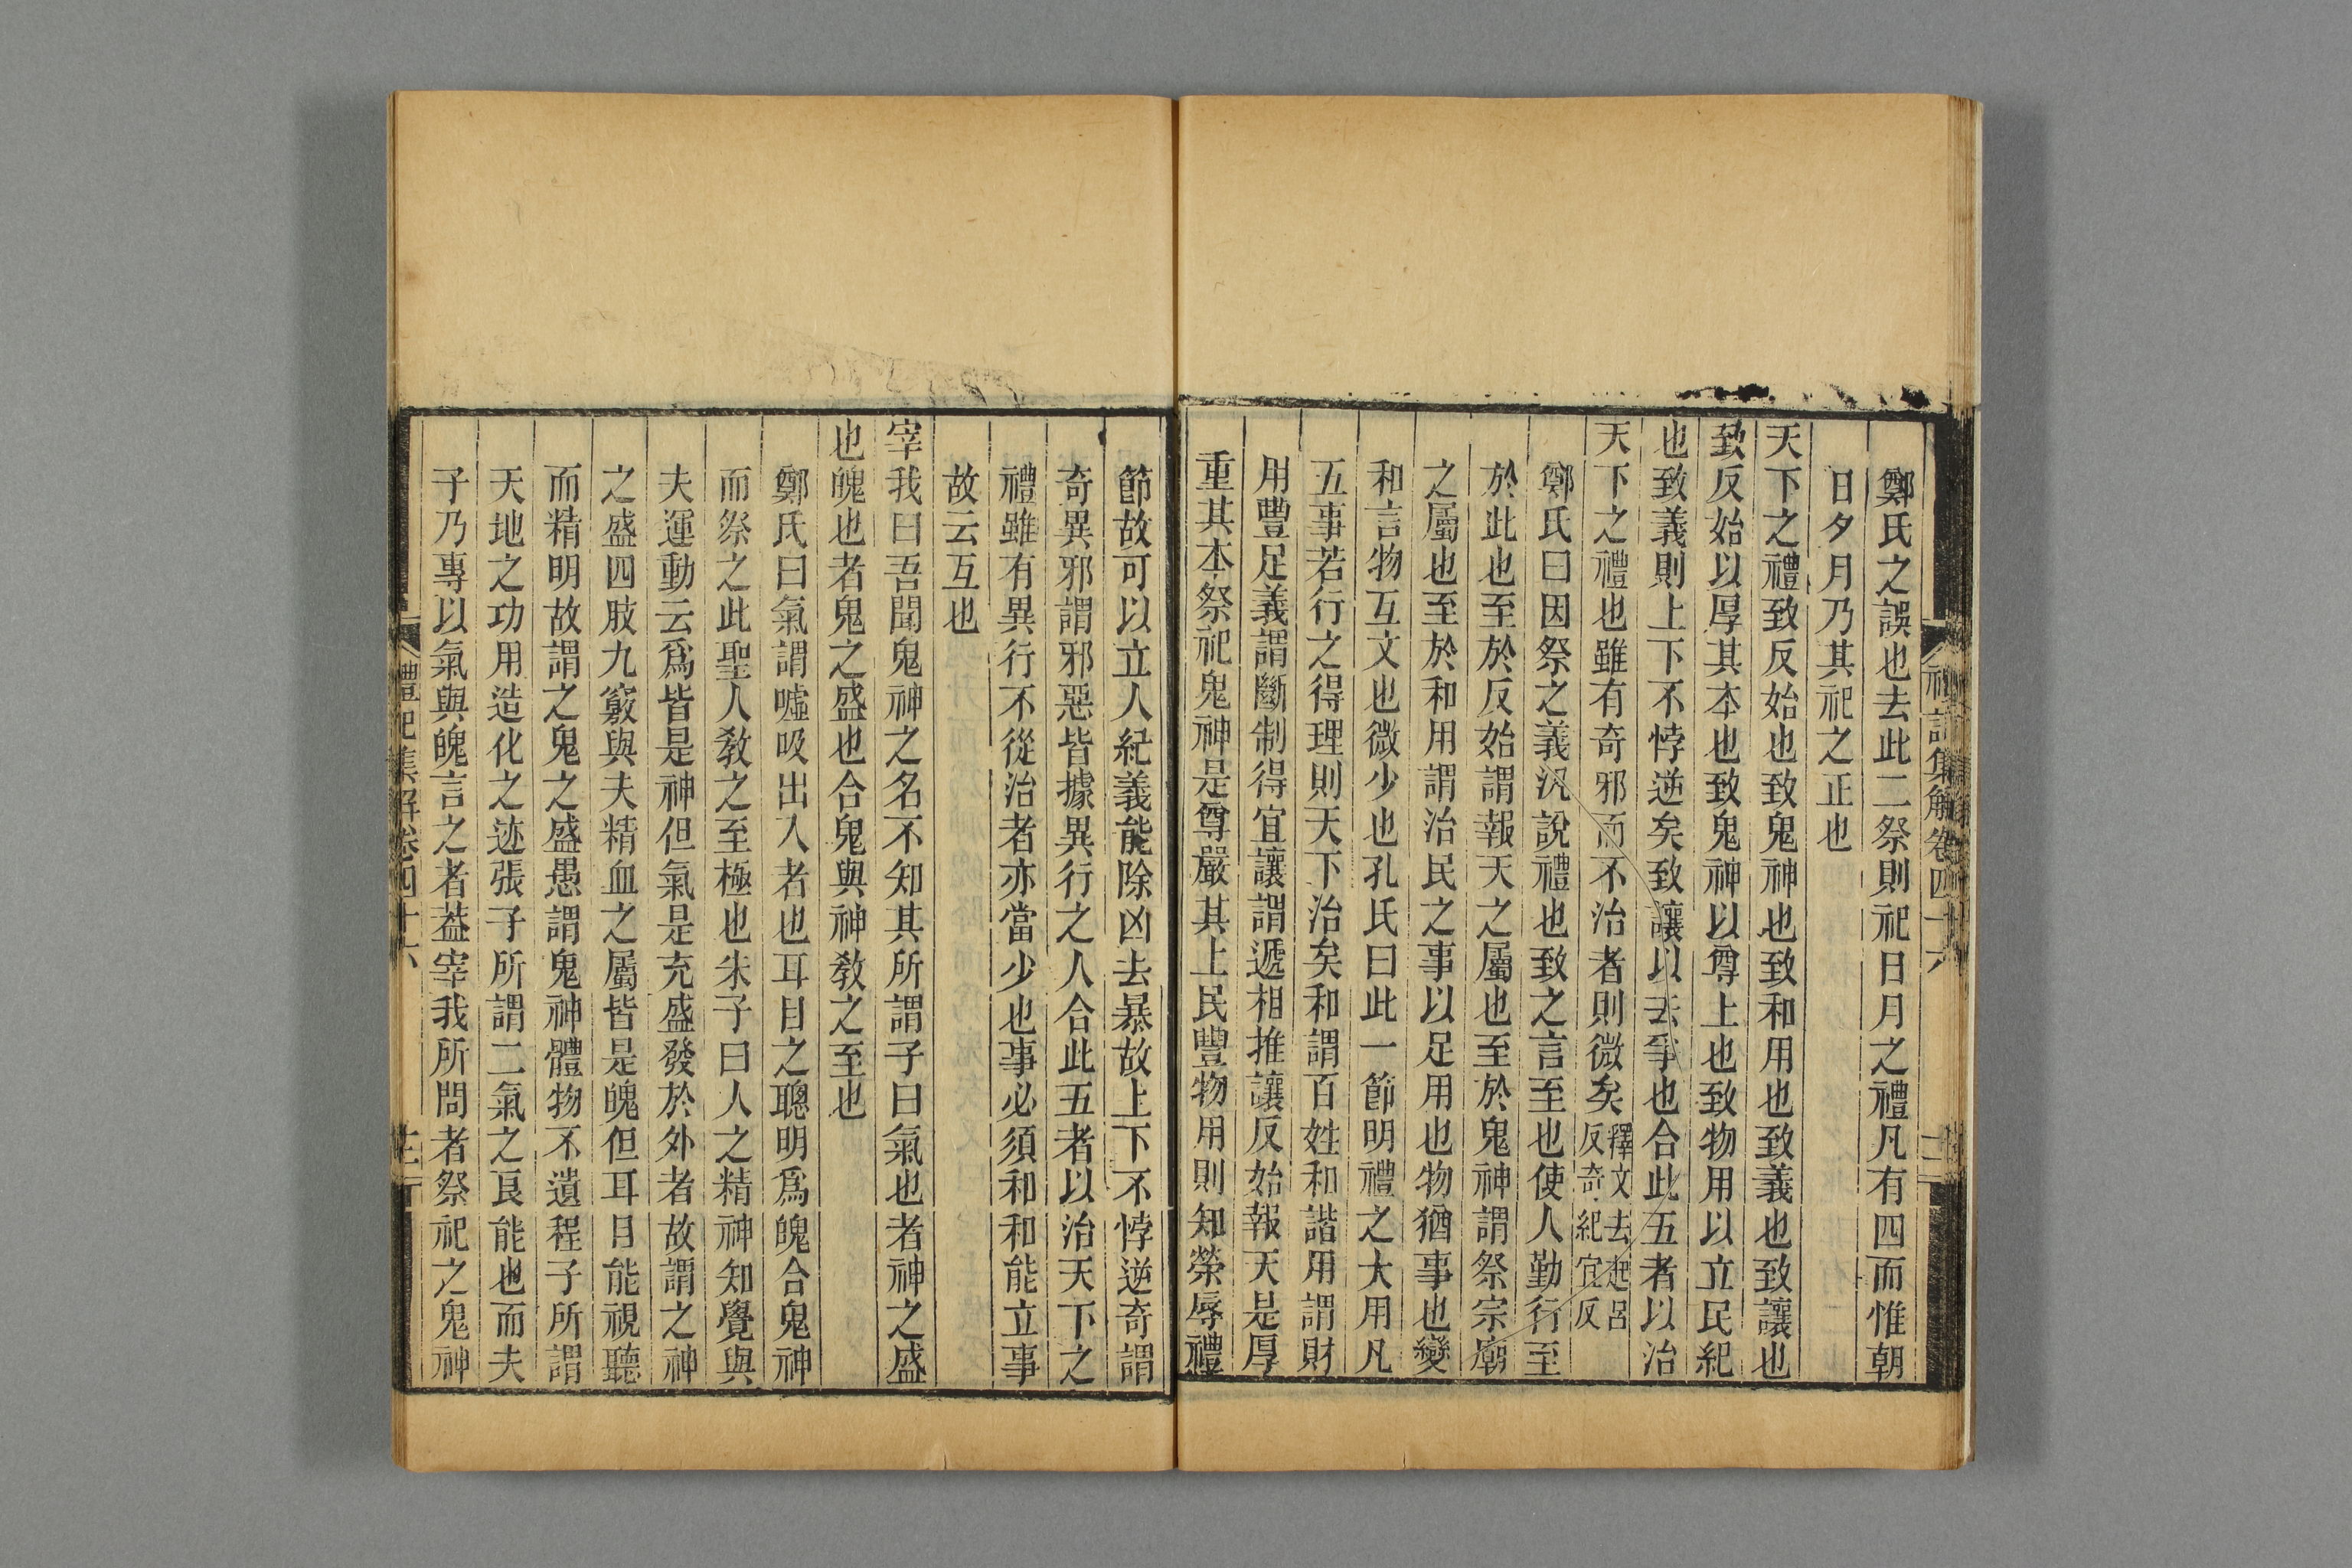 禮記集解卷四十六
鄭氏之誤也去此二祭則祀日月之禮凡有四而惟朝
日夕月乃其祀之正也
天下之禮致反始也致鬼神也致和用也致義也致讓也
致反始以厚其本也致鬼神以尊上也致物用以立民紀
也致義則上下不悖逆矣致讓以去爭也合此五者以治
天下之禮也雖有奇邪而不治者則微矣釋文去起呂反奇紀宜反
鄭氏曰因祭之義汎說禮也致之言至也使人勤行至
於此也至於反始謂報天之屬也至於鬼神謂祭宗廟
之屬也至於和用謂治民之事以足用也物猶事也變
和言物互文也微少也孔氏曰此一節明禮之大用凡
五事若行之得理則天下治矣和謂百姓和諧用謂財
用豐足義謂斷制得宜讓謂遞相推讓反始報天是厚
重其本祭祀鬼神是尊嚴其上民豐物用則知榮辱禮
節故可以立人紀義能除凶去暴故上下不悖逆奇謂
奇異邪謂邪惡皆據異行之人合此五者以治天下之
禮雖有異行不從治者亦當少也事必須和和能立事
故云互也
宰我曰吾聞鬼神之名不知其所謂子曰氣也者神之盛
也魄也者鬼之盛也合鬼與神敎之至也
鄭氏曰氣謂噓吸出入者也耳目之聰明爲魄合鬼神
而祭之此聖人敎之至極也朱子曰人之精神知覺與
夫運動云爲皆是神但氣是充盛發於外者故謂之神
之盛四肢九竅與夫精血之屬皆是魄但耳目能視聽
而精明故謂之鬼之盛愚謂鬼神體物不遺程子所謂
天地之功用造化之迹張子所謂二氣之良能也而夫
子乃專以氣與魄言之者葢宰我所問者祭祀之鬼神
禮記集解卷四十六